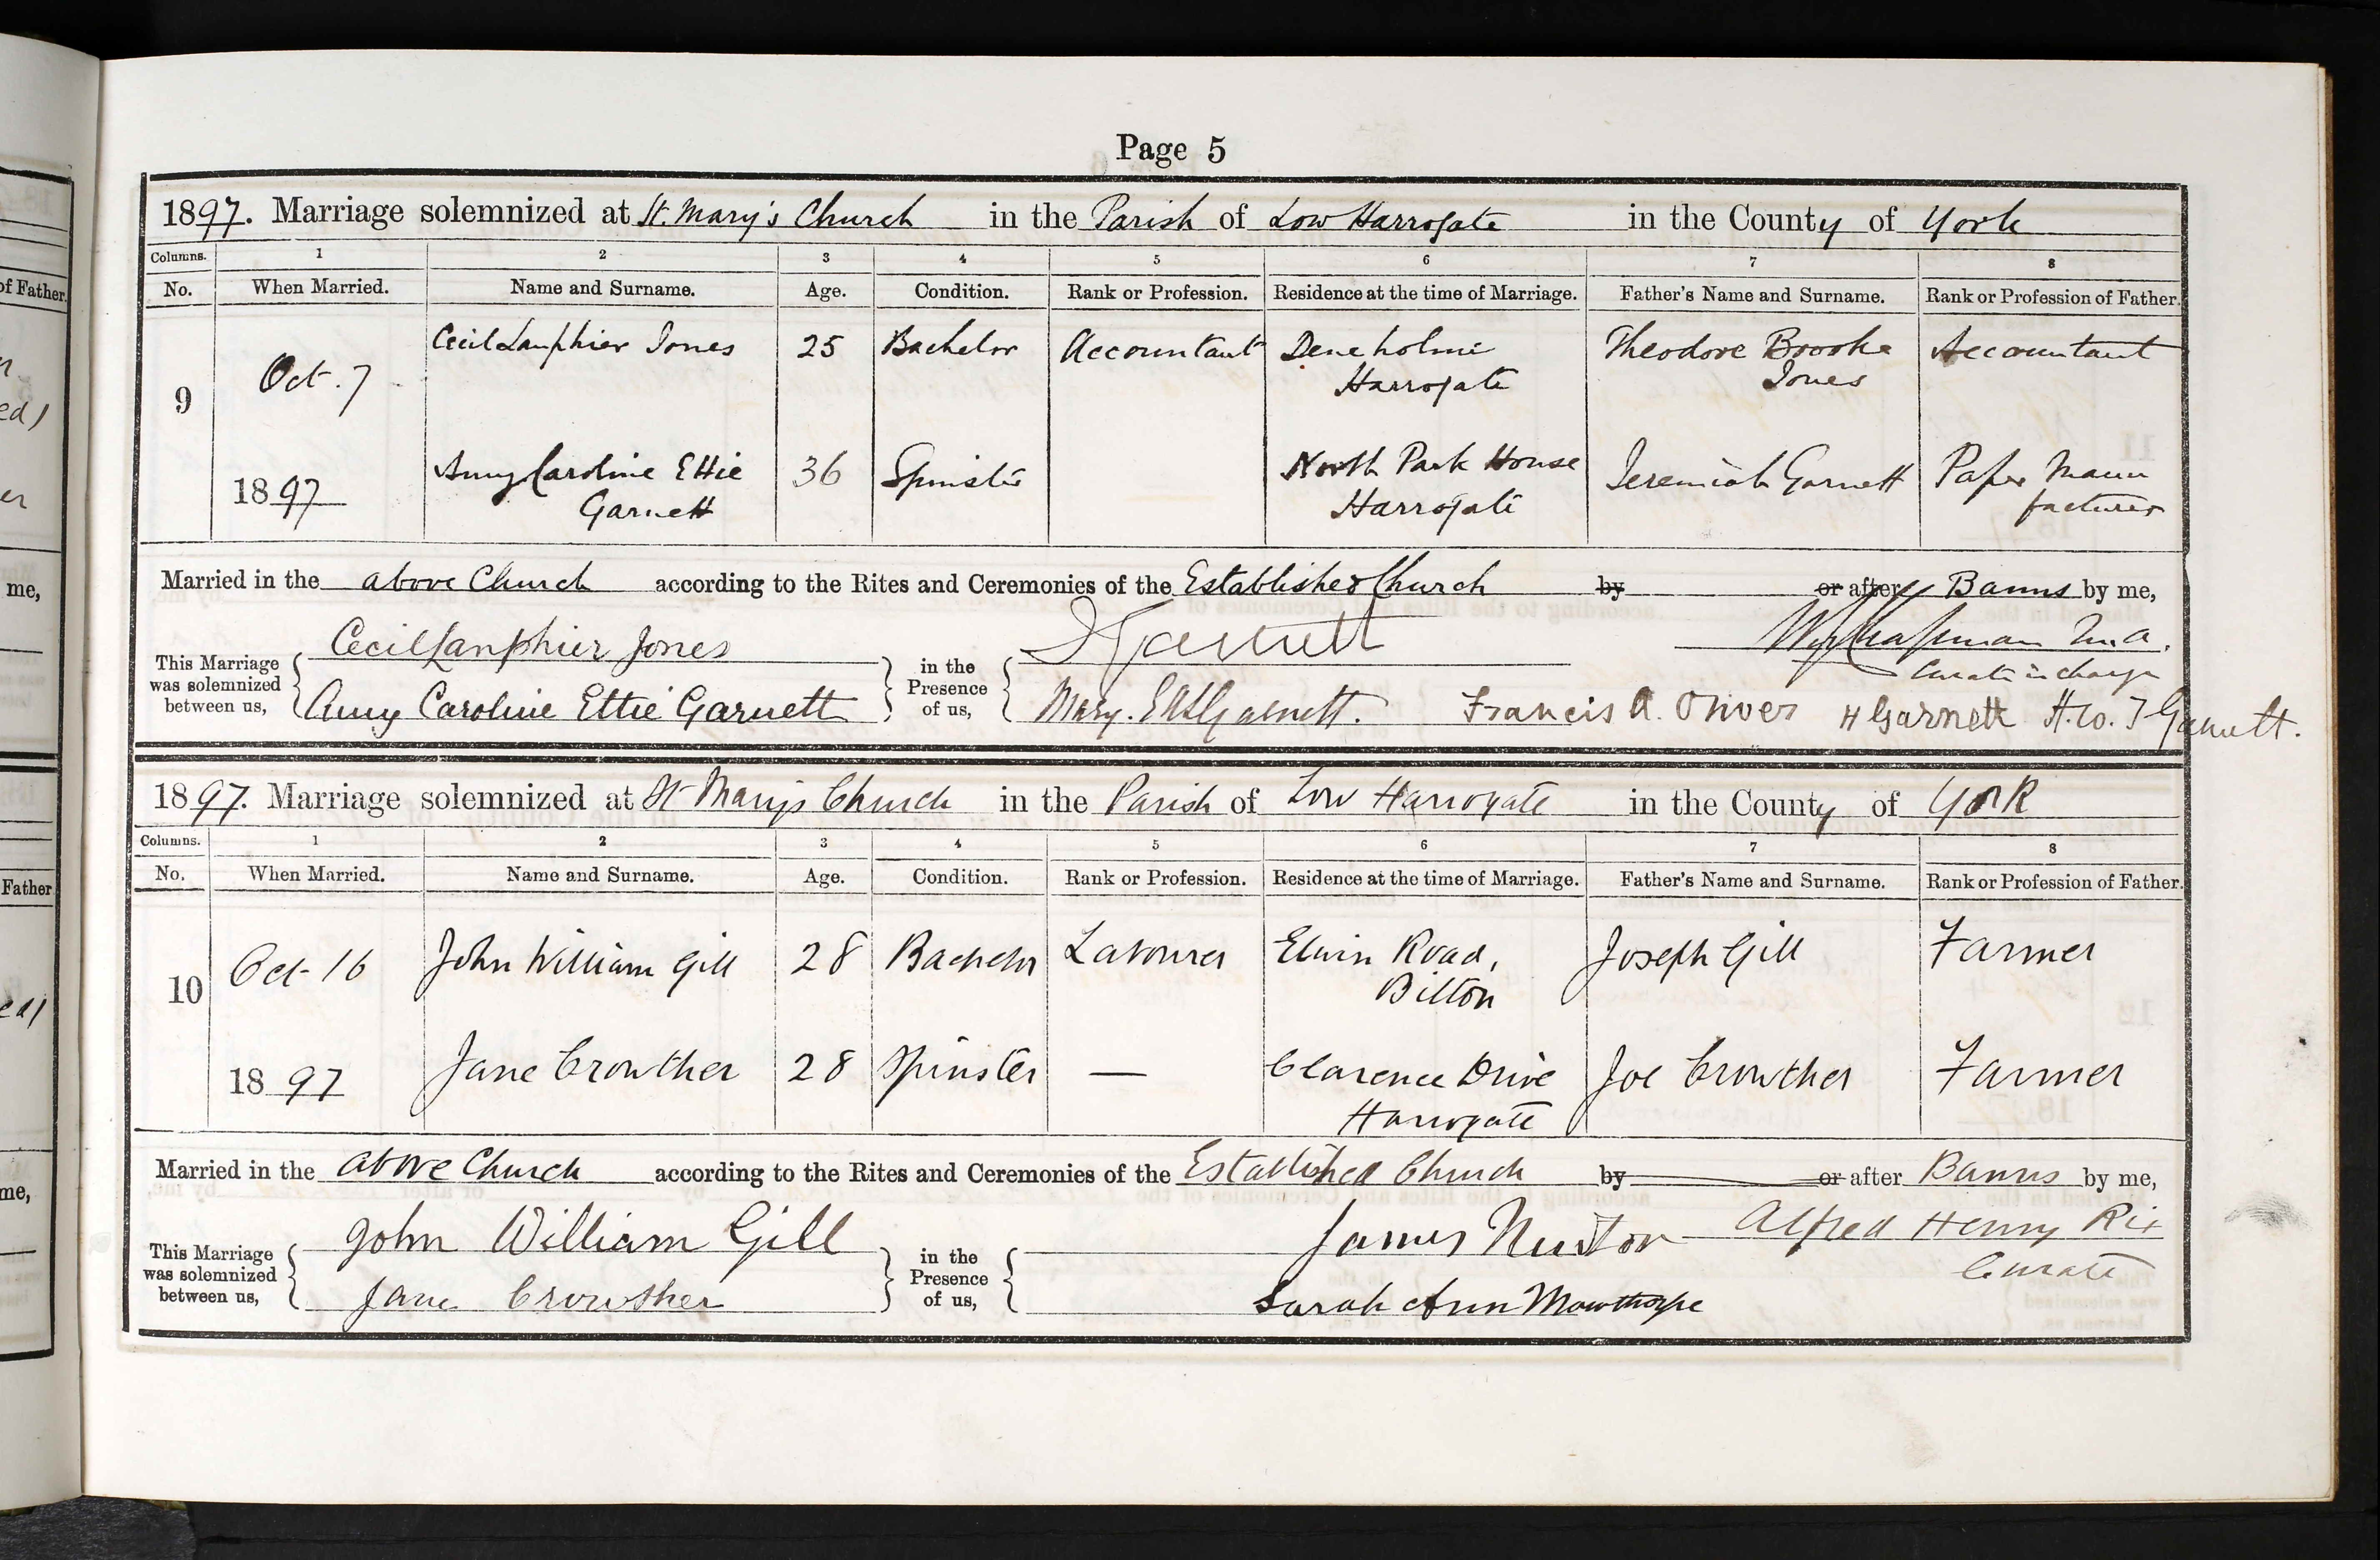 Page 5
1897. Marriage solemnized at St. Mary's Church in the Parish of Low Harrogate in the County of York
Columns. 1 2 3 4 5 6 7 8
No. When Married. Name and Surname. Age. Condition. Rank or Profession. Residence at the time of Marriage. Father's Name and Surname. Rank or Profession of Father.
9 Oct. 7 Cecil Lanphier Jones 25 Bachelor Accountant Deneholme Theodore Brooke Accountant
Harrogate Jones
1897 Amy Caroline Ettie 36 Spinster North Park House Jeremiah Garnett Paper Manu
Garnett Harrogate facturer
Married in the above Church according to the Rites and Ceremonies of the Established Church by or after Banns by me,
Cecil Lanphier Jones Garnett Chapman M.A.
This Marriage was solemnized between us, in the Presence of us, Curate in charge
Amy Caroline Ettie Garnett Mary. Garnett. Francis A. Oliver H Garnett Garnett.
1897. Marriage solemnized at St Mary's Church in the Parish of Low Harrogate in the County of York
Columns. 1 2 3 4 5 6 7 8
No. When Married. Name and Surname. Age. Condition. Rank or Profession. Residence at the time of Marriage. Father's Name and Surname. Rank or Profession of Father.
10 Oct 16 John William Gill 28 Bachelor Labourer Elwin Road, Joseph Gill Farmer
Bilton
1897 Jane Crowther 28 Spinster — Clarence Drive Joe Crowther Farmer
Harrogate
Married in the above Church according to the Rites and Ceremonies of the Established Church by or after Banns by me,
John William Gill James Alfred Henry Rix
This Marriage was solemnized between us, in the Presence of us, Curate
Jane Crowther Sarah Ann Mowthorpe
of Father.
me,
Father
me,